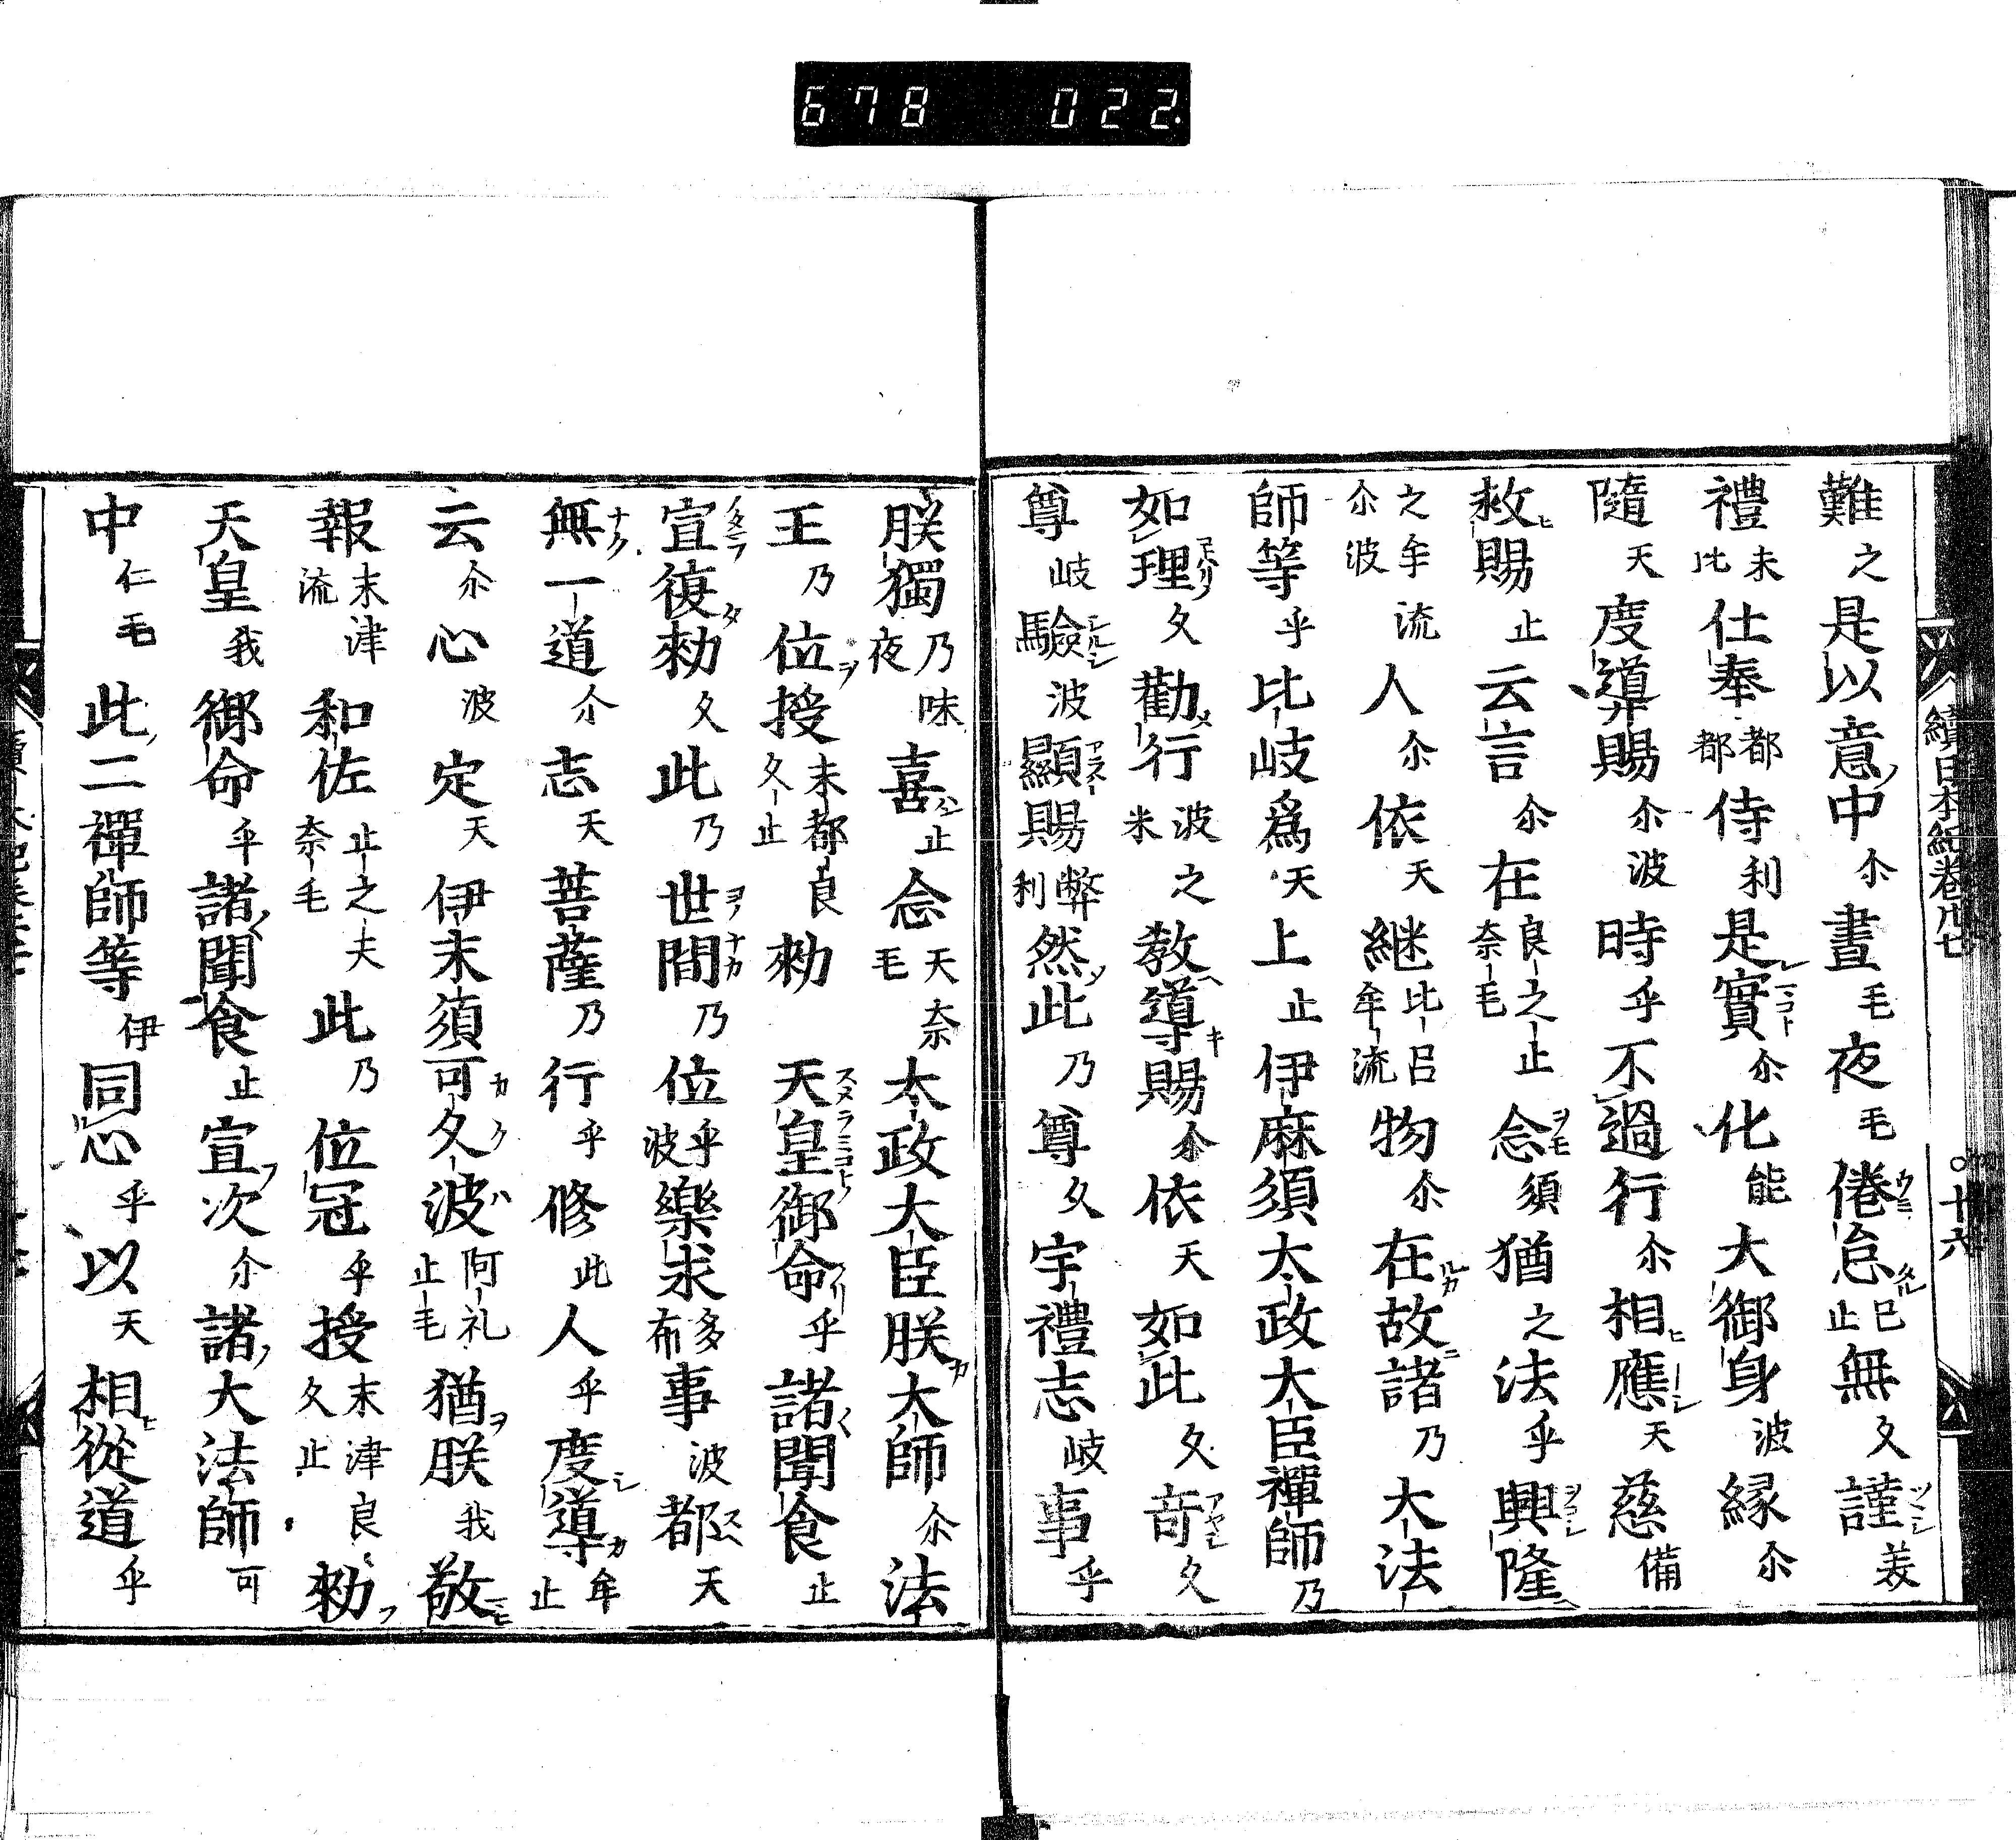 678 022
續日本紀卷廿七 〇十六
難之是以意中尒晝毛夜毛倦怠已止無久謹美
禮末比仕奉都都侍利是實尒化能大御身波縁尒
隨天度導賜尒波時乎不過行尒相應天慈備
救賜止云言尒在良之止奈毛念須猶之法乎興隆
之牟流尒波人尒依天継比呂牟流物尒在故諸乃大法
師等乎比岐爲天上止伊麻須太政大臣禪師乃
如理久勸行波之米教導賜尒依天如此久奇久
尊岐驗波顯賜弊利然此乃尊久宇禮志岐事乎
朕獨乃味夜喜止念天奈毛太政大臣朕大師尒法
王乃位授末都良久止勅天皇御命乎諸聞食止
宣復勅久此乃世間乃位乎波樂求多布事波都天
無一道尒志天菩薩乃行乎修此人乎度導牟止
云尒心波定天伊末須可久波阿礼止毛猶朕我敬
報末津流和佐止之夫奈毛此乃位冠乎授末津良久止勅
天皇我御命乎諸聞食止宣次尒諸大法師可
中仁毛此二禪師等伊同心乎以天相從道乎